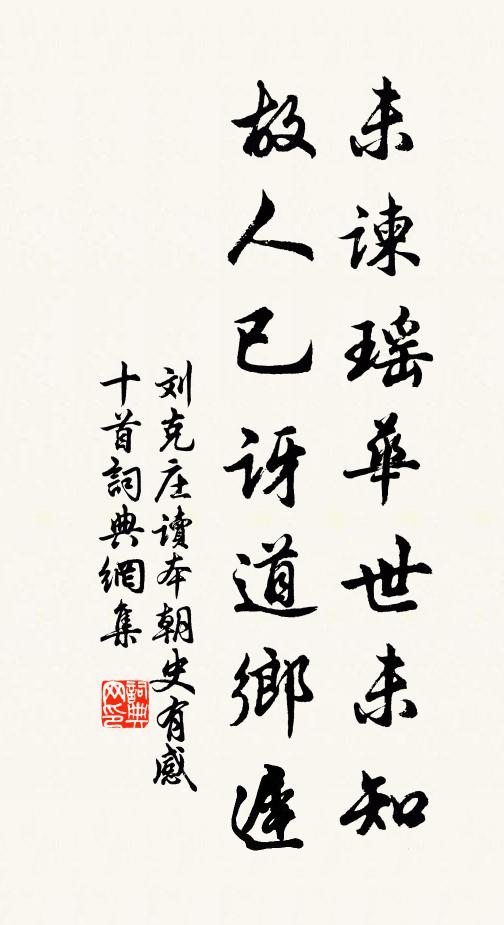 未諫瑶華世未知
故人已訝道鄉遲
刘克庄讀本朝史有感
十首詞典網集
詞典
网印